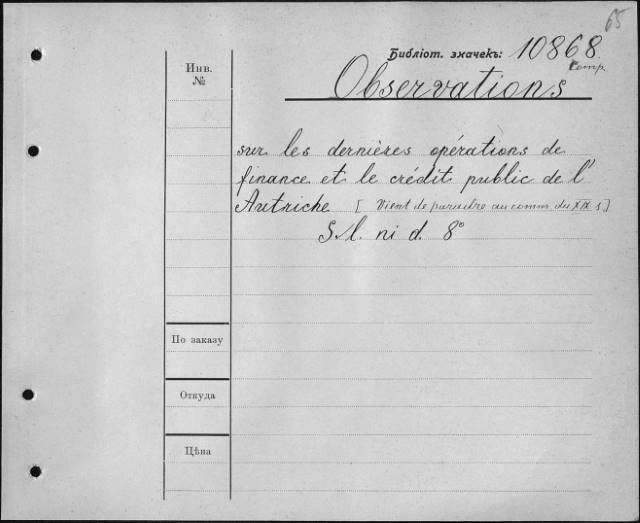 65
Библіот. значекъ: 10868
comp.
Инв.
№
Observations
sur les dernières opérations de
finance et le crédit public de l'
Autriche [Vient de paraître au comm. du XIX s]
S. l. ni d. 8°
По заказу
Откуда
Цѣна